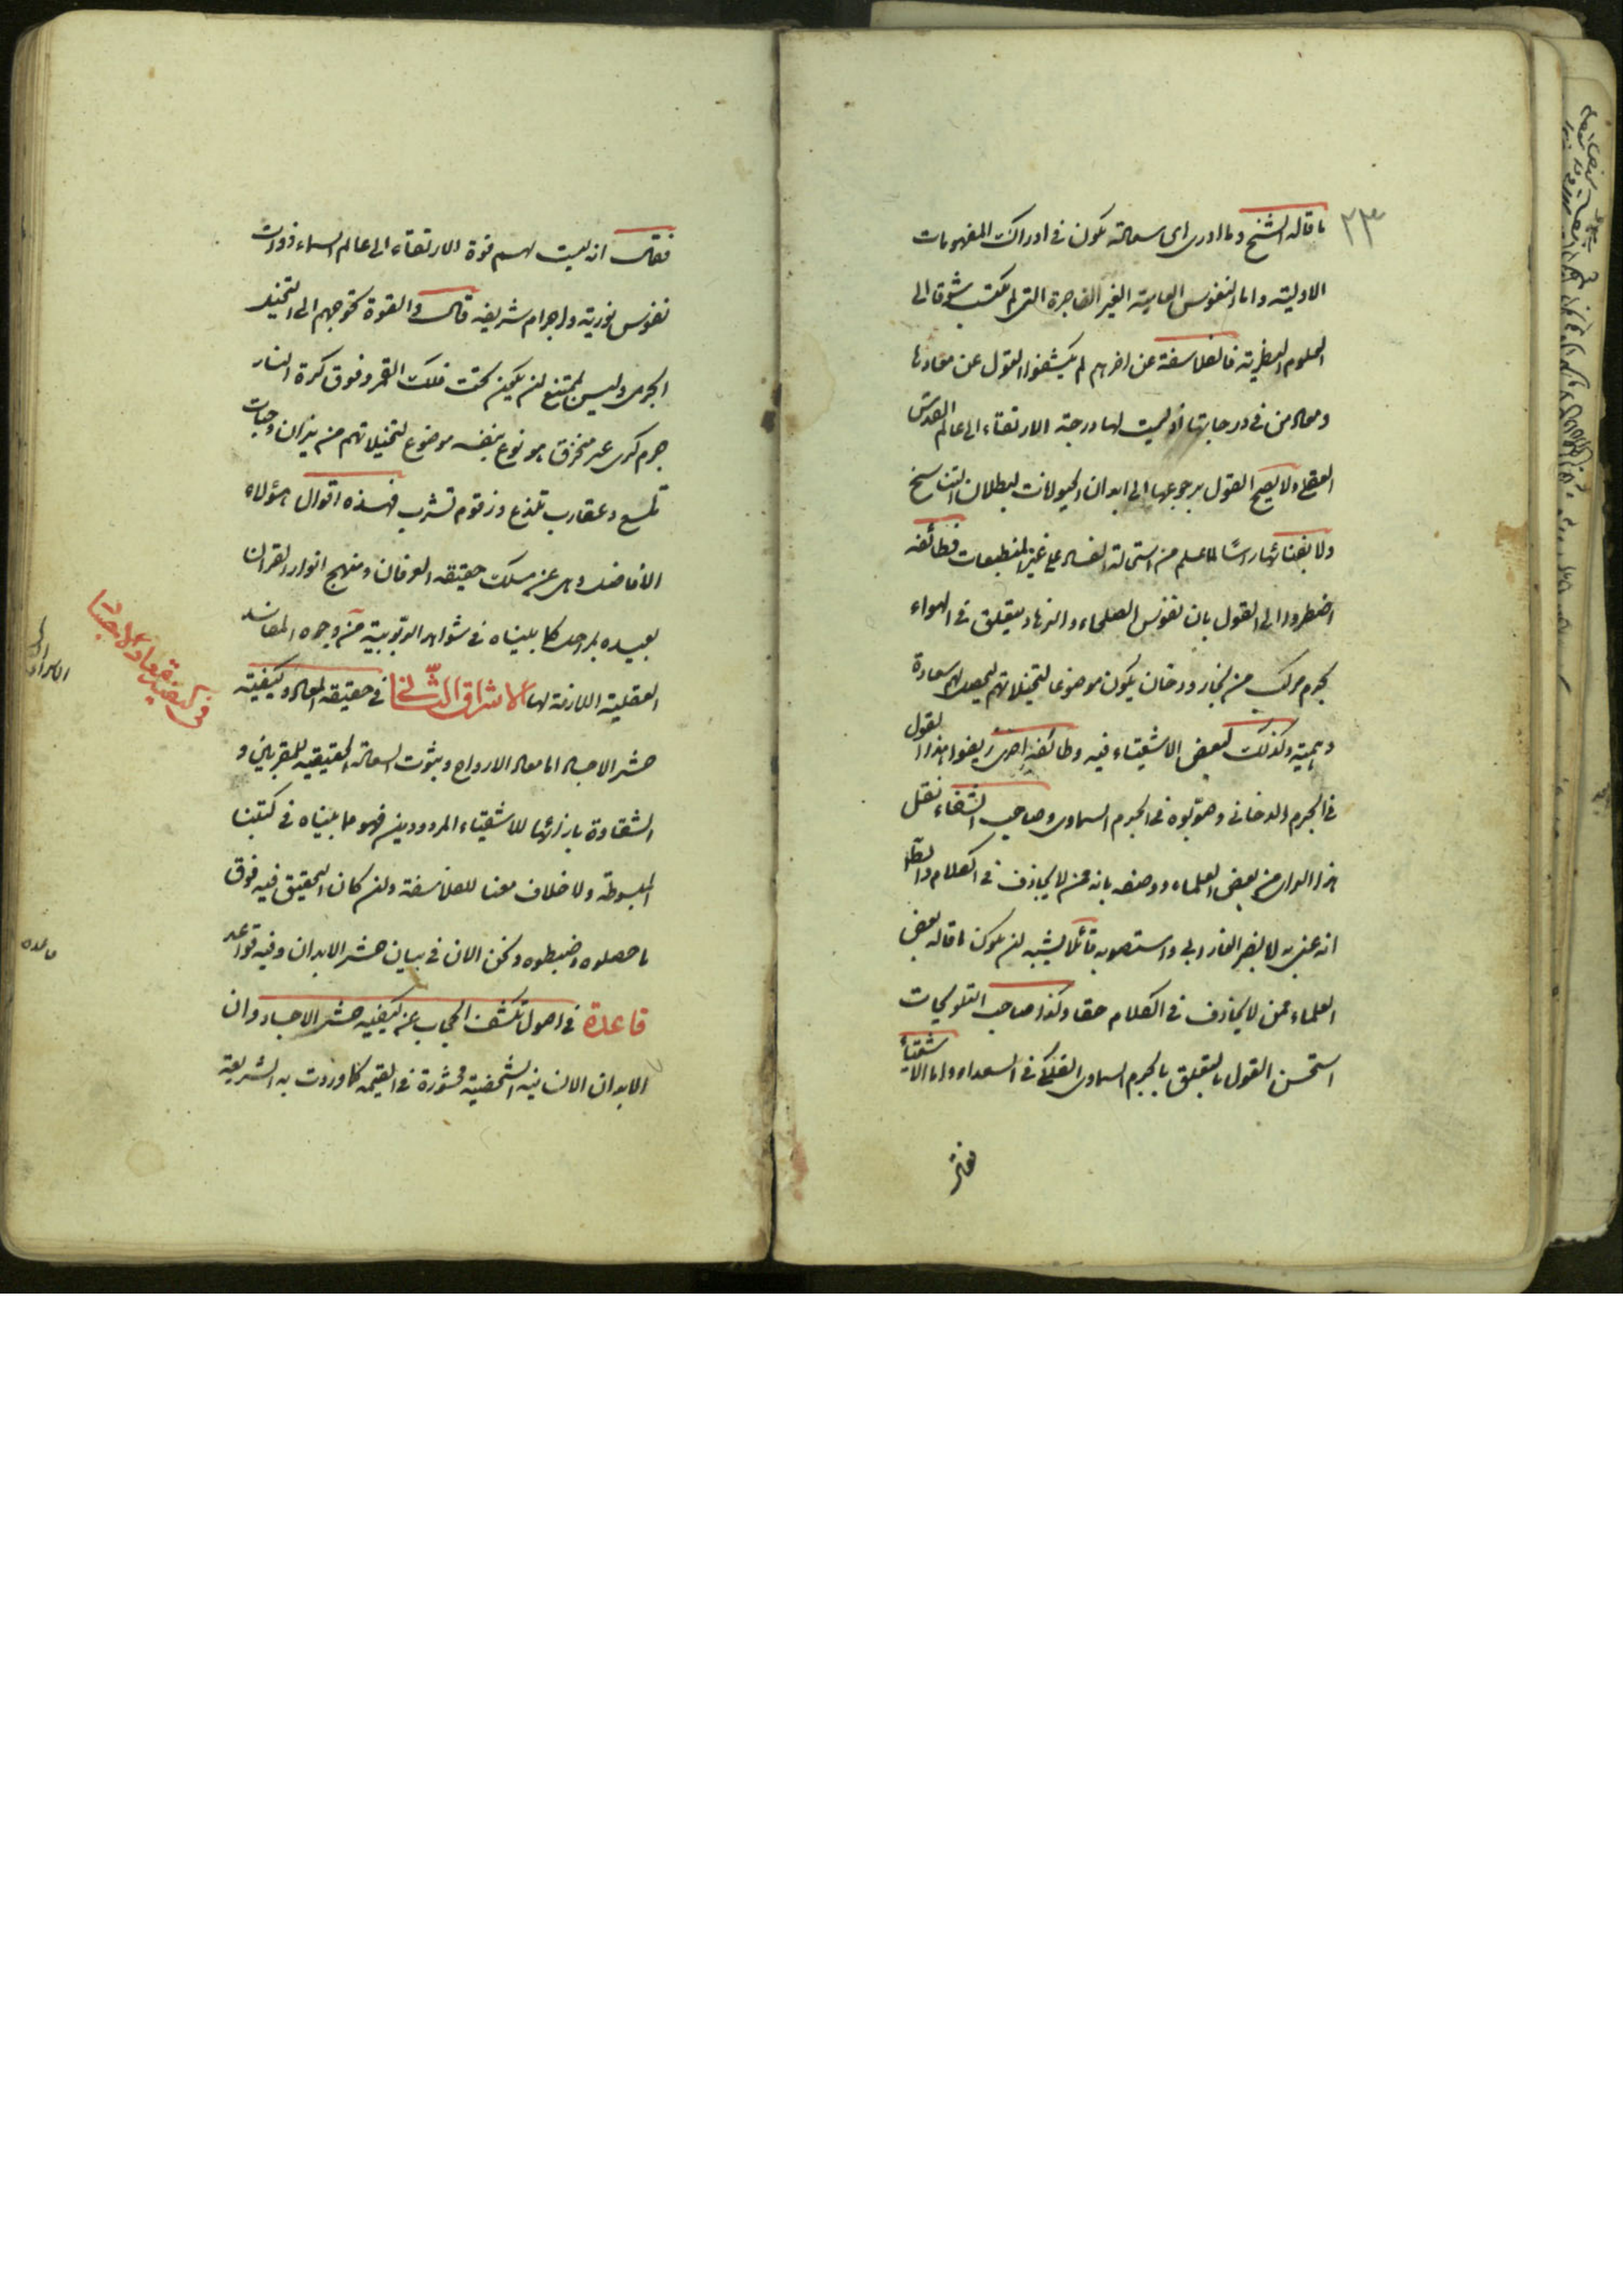 ٢٣
ما قاله الشيخ وما ادرى اى سعادة تكون فى ادراك المفهومات
الاولية واما النفوس العامية الغير الفاجرة التى لم تكتسب شوقا الى
العلوم النظرية فالفلاسفة عن اخرهم لم يكشفوا القول عن معادها
ومعاد من فى درجاتها اذ ليست لها درجة الارتقاء الى عالم القدس
العقلى ولا يصح القول برجوعها الى ابدان الحيوانات لبطلان التناسخ
ولا بفنائها راسًا لما علم من استحالة الفساد على غير المنطبعات فطائفة
اضطروا الى القول بان نفوس الصلحاء والزهاد يتعلق فى الهواء
بجرم مركب من بخار ودخان يكون موضوعا لتخيلاتهم ليحصل لهم سعادة
وهمية وكذلك لبعض الاشقياء فيه وطائفة اخرى زيفوا هذا القول
فى الجرم الدخانى وصوبوه فى الجرم السماوى وصاحب الشفاء نقل
هذا الراى من بعض العلماء ووصفه بانه ممن لا يجازف فى الكلام والظ
انه عنى به ابا نصر الفارابى واستصوبه قائلا يشبه ان يكون ما قاله بعض
العلماء ممن لا يجازف فى الكلام حقا وكذا صاحب التلويحات
استحسن القول بالتعلق بالجرم السماوى الفلكى فى السعداء واما الاشقياء
فقال
فقال انه ليست لهم قوة الارتقاء الى عالم السماء ذوات
نفوس نورية واجرام شريفة قال والقوة تحوجهم الى التخيل
الجرمى وليس بممتنع ان يكون تحت فلك القمر وفوق كرة النار
جرم كرى غير منخرق هو نوع بنفسه موضوع لتخيلاتهم من نيران وحيات
تلسع وعقارب تلذع وزقوم تشرب فهذه اقوال هؤلاء
الأفاضل وهى عن مسلك حقيقة العرفان ومنهج انوار القران
بعيده بمراحل كما بيناه فى شواهد الربوبية من وجوه المفاسد
العقلية اللازمة لها الاشراق الثّانى فى حقيقة المعاد وكيفية
حشر الاجساد اما معاد الارواح وثبوت السعادة الحقيقية للمقربين و
الشقاوة بازائها للاشقياء المردودين فهو مما بيناه فى كتبنا
المبسوطة ولا خلاف معنا للفلاسفة وان كان التحقيق فيه فوق
ما حصلوه وضبطوه ونحن الان فى بيان حشر الابدان وفيه قواعد
قاعدة فى اصول تكشف الحجاب عن كيفية حشر الاجساد وان
الابدان الانسانية الشخصية محشورة فى القيمة كما وردت به الشريعة